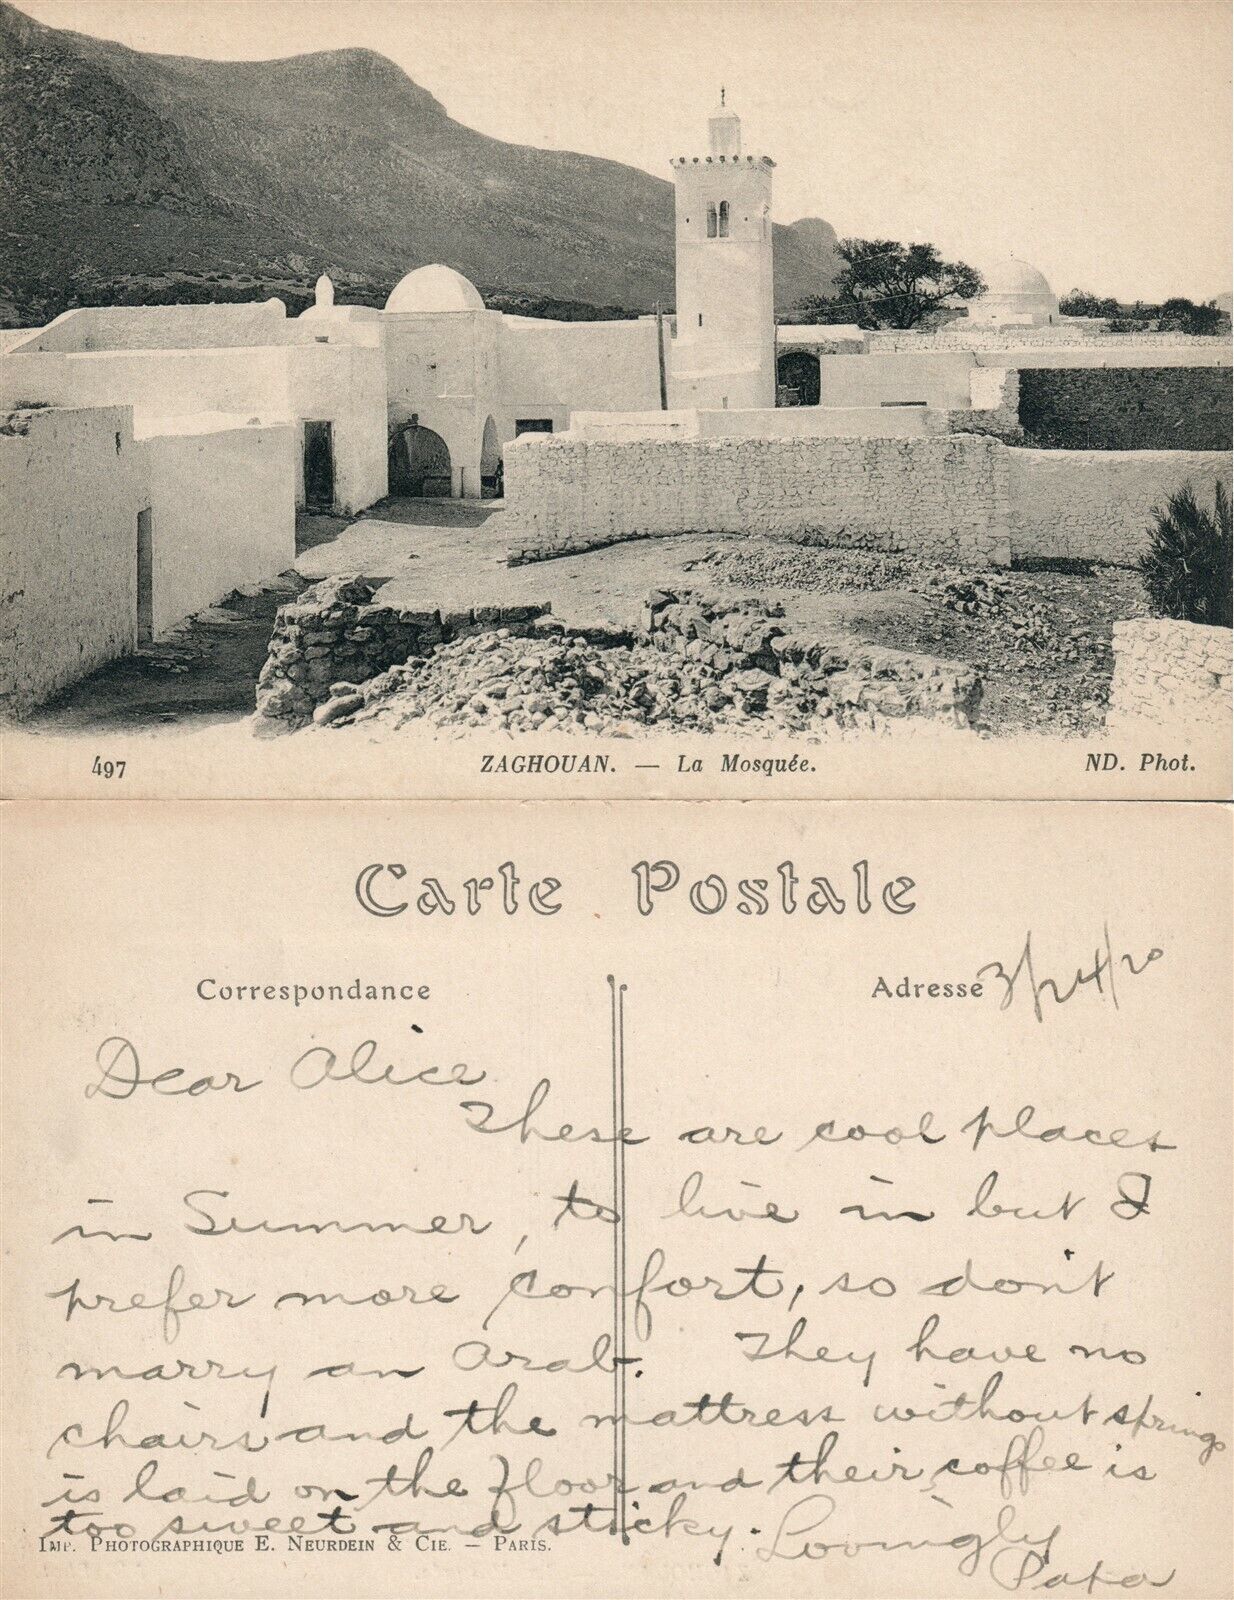 497
ZAGHOUAN. — La Mosquée.
ND. Phot.
Carte Postale
Correspondance
Adresse
3/24/20
Dear Alice
These are cool places
in Summer, to live in but I
prefer more comfort, so don't
marry an Arab. They have no
chairs and the mattress without springs
is laid on the floor and their coffee is
too sweet and sticky. Lovingly
Papa
IMP. PHOTOGRAPHIQUE E. NEURDEIN & CIE. — PARIS.